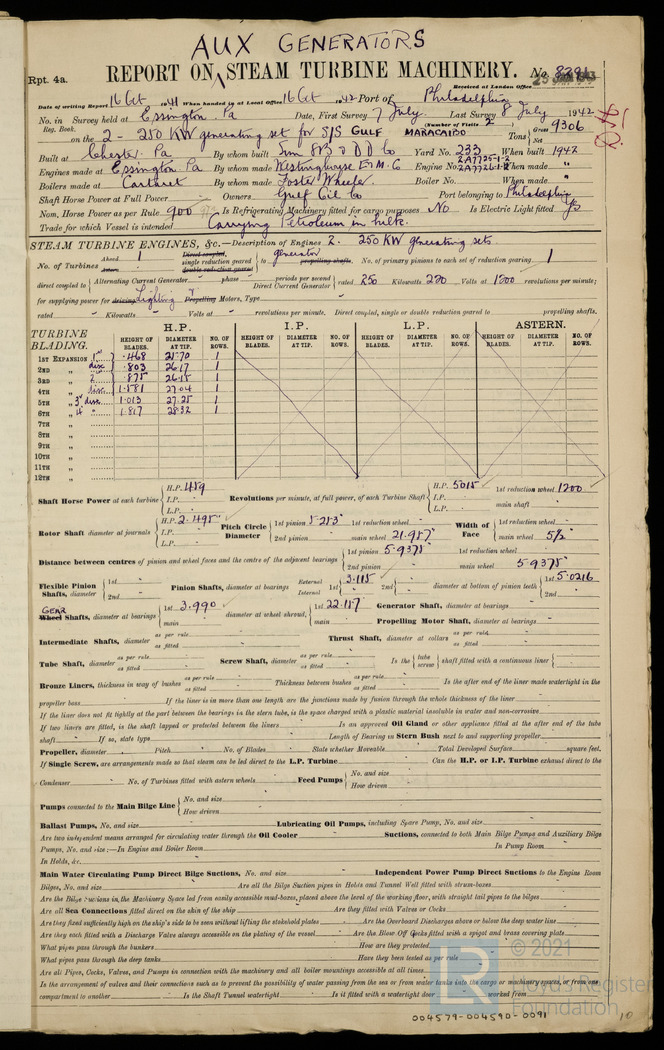 AUX GENERATORS
Rpt. 4a. REPORT ON ^ STEAM TURBINE MACHINERY. No. 8391
Received at London Office
Date of writing Report 16 Oct 1941 When handed in at Local Office 16 Oct 1942 Port of Philadelphia
No. in Survey held at Essington, Pa Date, First Survey 7 July Last Survey 8 July 1942
Reg. Book. (Number of Visits 2)
on the 2 - 250 KW generating set for S/S GULF MARACAIBO Tons Gross 9306 Net
Built at Chester, Pa By whom built Sun SB & DD Co Yard No. 233 When built 1942
Engines made at Essington Pa By whom made Westinghouse E. & M. Co Engine No. 2A7725-1-2 2A7726-1-2 When made "
Boilers made at Carteret By whom made Foster Wheeler. Boiler No. When made "
Shaft Horse Power at Full Power Owners Gulf Oil Co Port belonging to Philadelphia
Nom. Horse Power as per Rule 900 Is Refrigerating Machinery fitted for cargo purposes No Is Electric Light fitted Yes
Trade for which Vessel is intended Carrying Petroleum in bulk.
STEAM TURBINE ENGINES, &c.—Description of Engines 2. 250 KW generating sets
No. of Turbines Ahead 1 Astern Direct coupled, single reduction geared double reduction geared to generator propelling shafts. No. of primary pinions to each set of reduction gearing 1
direct coupled to Alternating Current Generator phase periods per second Direct Current Generator rated 250 Kilowatts 230 Volts at 1200 revolutions per minute;
for supplying power for driving Lighting Propelling Motors, Type
rated Kilowatts Volts at revolutions per minute. Direct coupled, single or double reduction geared to propelling shafts.
TURBINE BLADING. H.P. I.P. L.P. ASTERN.
HEIGHT OF BLADES. DIAMETER AT TIP. NO. OF ROWS. HEIGHT OF BLADES. DIAMETER AT TIP. NO. OF ROWS. HEIGHT OF BLADES. DIAMETER AT TIP. NO. OF ROWS. HEIGHT OF BLADES. DIAMETER AT TIP. NO. OF ROWS.
1ST EXPANSION 1st .468 25.70 1
2ND " disc .803 26.17 1
3RD " 2 .875 26.15 1
4TH " disc 1.581 27.04 1
5TH " 3rd disc 1.013 27.25 1
6TH " 4 " 1.817 28.32 1
7TH "
8TH "
9TH "
10TH "
11TH "
12TH "
Shaft Horse Power at each turbine H.P. 459 I.P. L.P. Revolutions per minute, at full power, of each Turbine Shaft H.P. 5015 I.P. L.P. 1st reduction wheel 1200 main shaft
Rotor Shaft diameter at journals H.P. 2.495" I.P. L.P. Pitch Circle Diameter 1st pinion 5.253" 2nd pinion 1st reduction wheel main wheel 21.957" Width of Face 1st reduction wheel main wheel 5 1/2"
Distance between centres of pinion and wheel faces and the centre of the adjacent bearings 1st pinion 5.9375" 2nd pinion 1st reduction wheel main wheel 5.9375"
Flexible Pinion Shafts, diameter 1st 2nd Pinion Shafts, diameter at bearings External Internal 1st 3.115 2nd diameter at bottom of pinion teeth 1st 5.0216 2nd
GEAR Wheel Shafts, diameter at bearings 1st 3.990 main diameter at wheel shroud, 1st 22.157 main Generator Shaft, diameter at bearings Propelling Motor Shaft, diameter at bearings
Intermediate Shafts, diameter as per rule as fitted Thrust Shaft, diameter at collars as per rule as fitted
Tube Shaft, diameter as per rule as fitted Screw Shaft, diameter as per rule as fitted Is the tube screw shaft fitted with a continuous liner
Bronze Liners, thickness in way of bushes as per rule as fitted Thickness between bushes as per rule as fitted Is the after end of the liner made watertight in the
propeller boss If the liner is in more than one length are the junctions made by fusion through the whole thickness of the liner
If the liner does not fit tightly at the part between the bearings in the stern tube, is the space charged with a plastic material insoluble in water and non-corrosive
If two liners are fitted, is the shaft lapped or protected between the liners Is an approved Oil Gland or other appliance fitted at the after end of the tube
shaft If so, state type Length of Bearing in Stern Bush next to and supporting propeller
Propeller, diameter Pitch No. of Blades State whether Moveable Total Developed Surface square feet.
If Single Screw, are arrangements made so that steam can be led direct to the L.P. Turbine Can the H.P. or I.P. Turbine exhaust direct to the
Condenser No. of Turbines fitted with astern wheels Feed Pumps No. and size How driven
Pumps connected to the Main Bilge Line No. and size How driven
Ballast Pumps, No. and size Lubricating Oil Pumps, including Spare Pump, No. and size
Are two independent means arranged for circulating water through the Oil Cooler Suctions, connected to both Main Bilge Pumps and Auxiliary Bilge
Pumps, No. and size:—In Engine and Boiler Room In Pump Room
In Holds, &c.
Main Water Circulating Pump Direct Bilge Suctions, No. and size Independent Power Pump Direct Suctions to the Engine Room
Bilges, No. and size Are all the Bilge Suction pipes in Holds and Tunnel Well fitted with strum-boxes
Are the Bilge Suctions in the Machinery Space led from easily accessible mud-boxes, placed above the level of the working floor, with straight tail pipes to the bilges
Are all Sea Connections fitted direct on the skin of the ship Are they fitted with Valves or Cocks
Are they fixed sufficiently high on the ship's side to be seen without lifting the stokehold plates Are the Overboard Discharges above or below the deep water line
Are they each fitted with a Discharge Valve always accessible on the plating of the vessel Are the Blow Off Cocks fitted with a spigot and brass covering plate
What pipes pass through the bunkers How are they protected
What pipes pass through the deep tanks Have they been tested as per rule
Are all Pipes, Cocks, Valves, and Pumps in connection with the machinery and all boiler mountings accessible at all times
Is the arrangement of valves and their connections such as to prevent the possibility of water passing from the sea or from water tanks into the cargo or machinery spaces, or from one
compartment to another Is the Shaft Tunnel watertight Is it fitted with a watertight door worked from
© 2021
Lloyd's Register
Foundation
004579-004590-0091
10